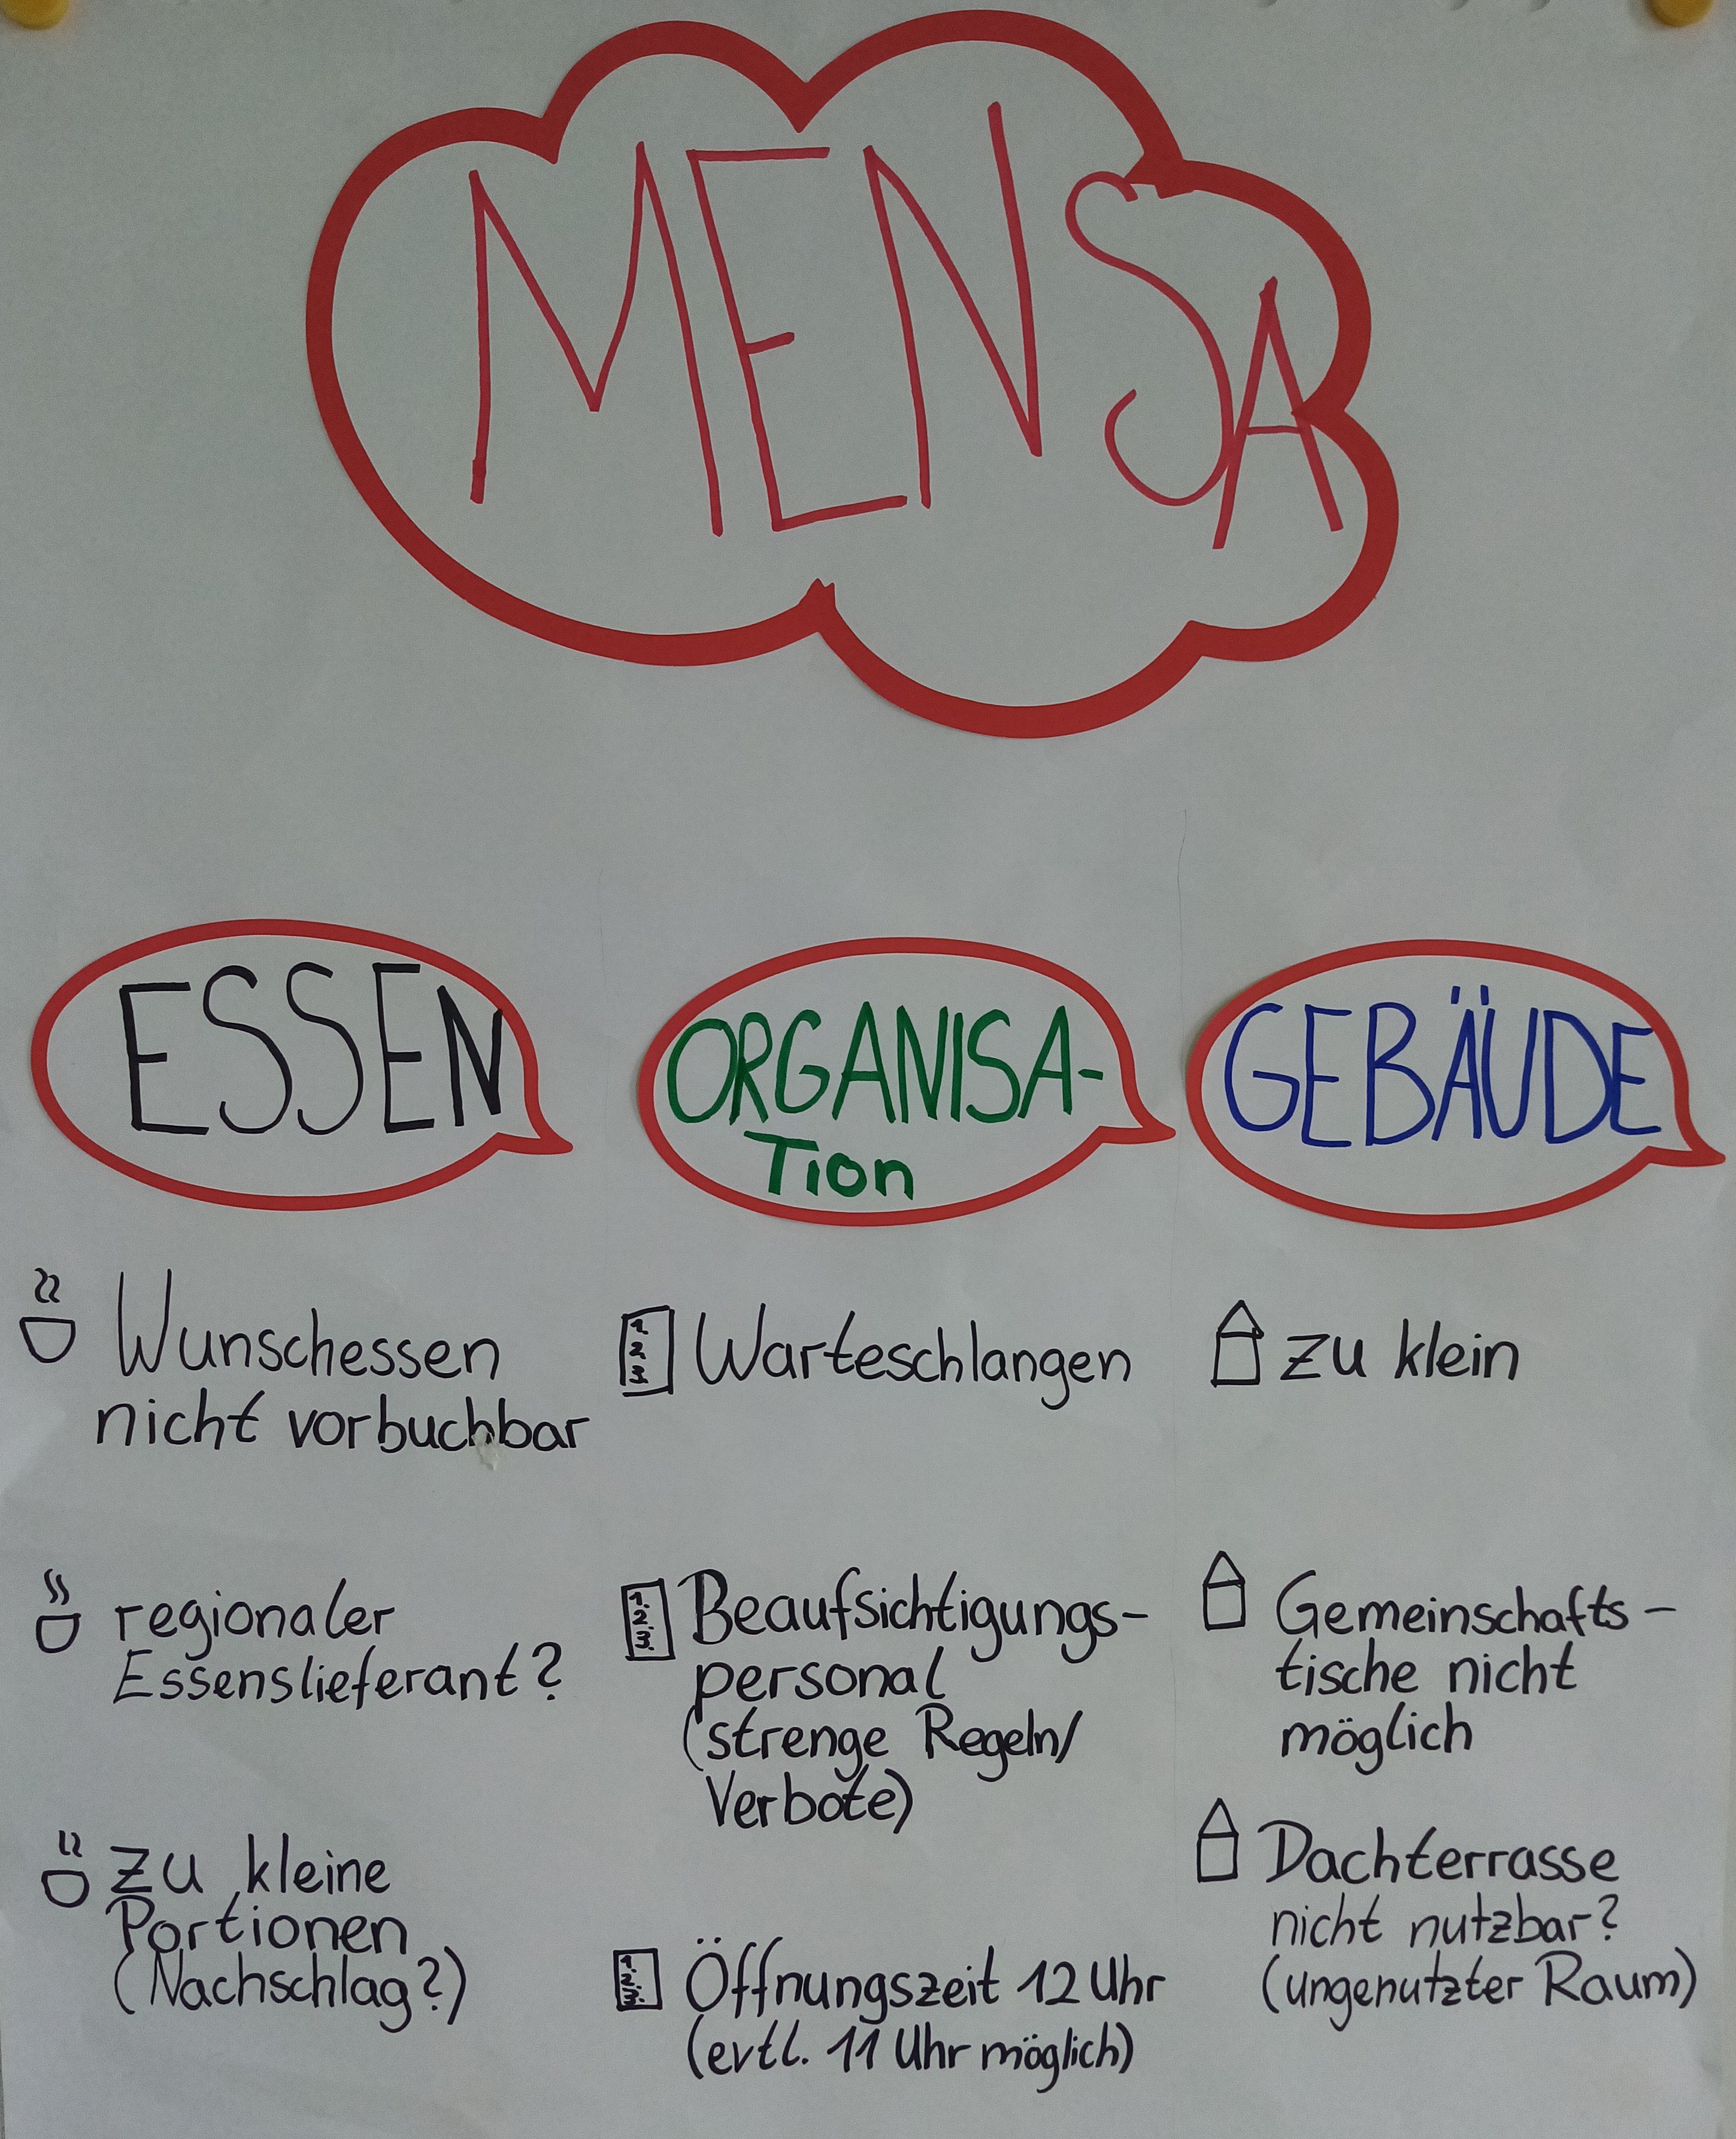 MENSA
ESSEN
Wunschessen
nicht vorbuchbar
regionaler
Essenslieferant?
zu kleine
Portionen
(Nachschlag?)
ORGANISA-
Tion
1.
2.
3.
Warteschlangen
1.
2.
3.
Beaufsichtigungs-
personal
(strenge Regeln/
Verbote)
1.
2.
3.
Öffnungszeit 12 Uhr
(evtl. 11 Uhr möglich)
GEBÄUDE
zu klein
Gemeinschafts-
tische nicht
möglich
Dachterrasse
nicht nutzbar?
(ungenutzter Raum)